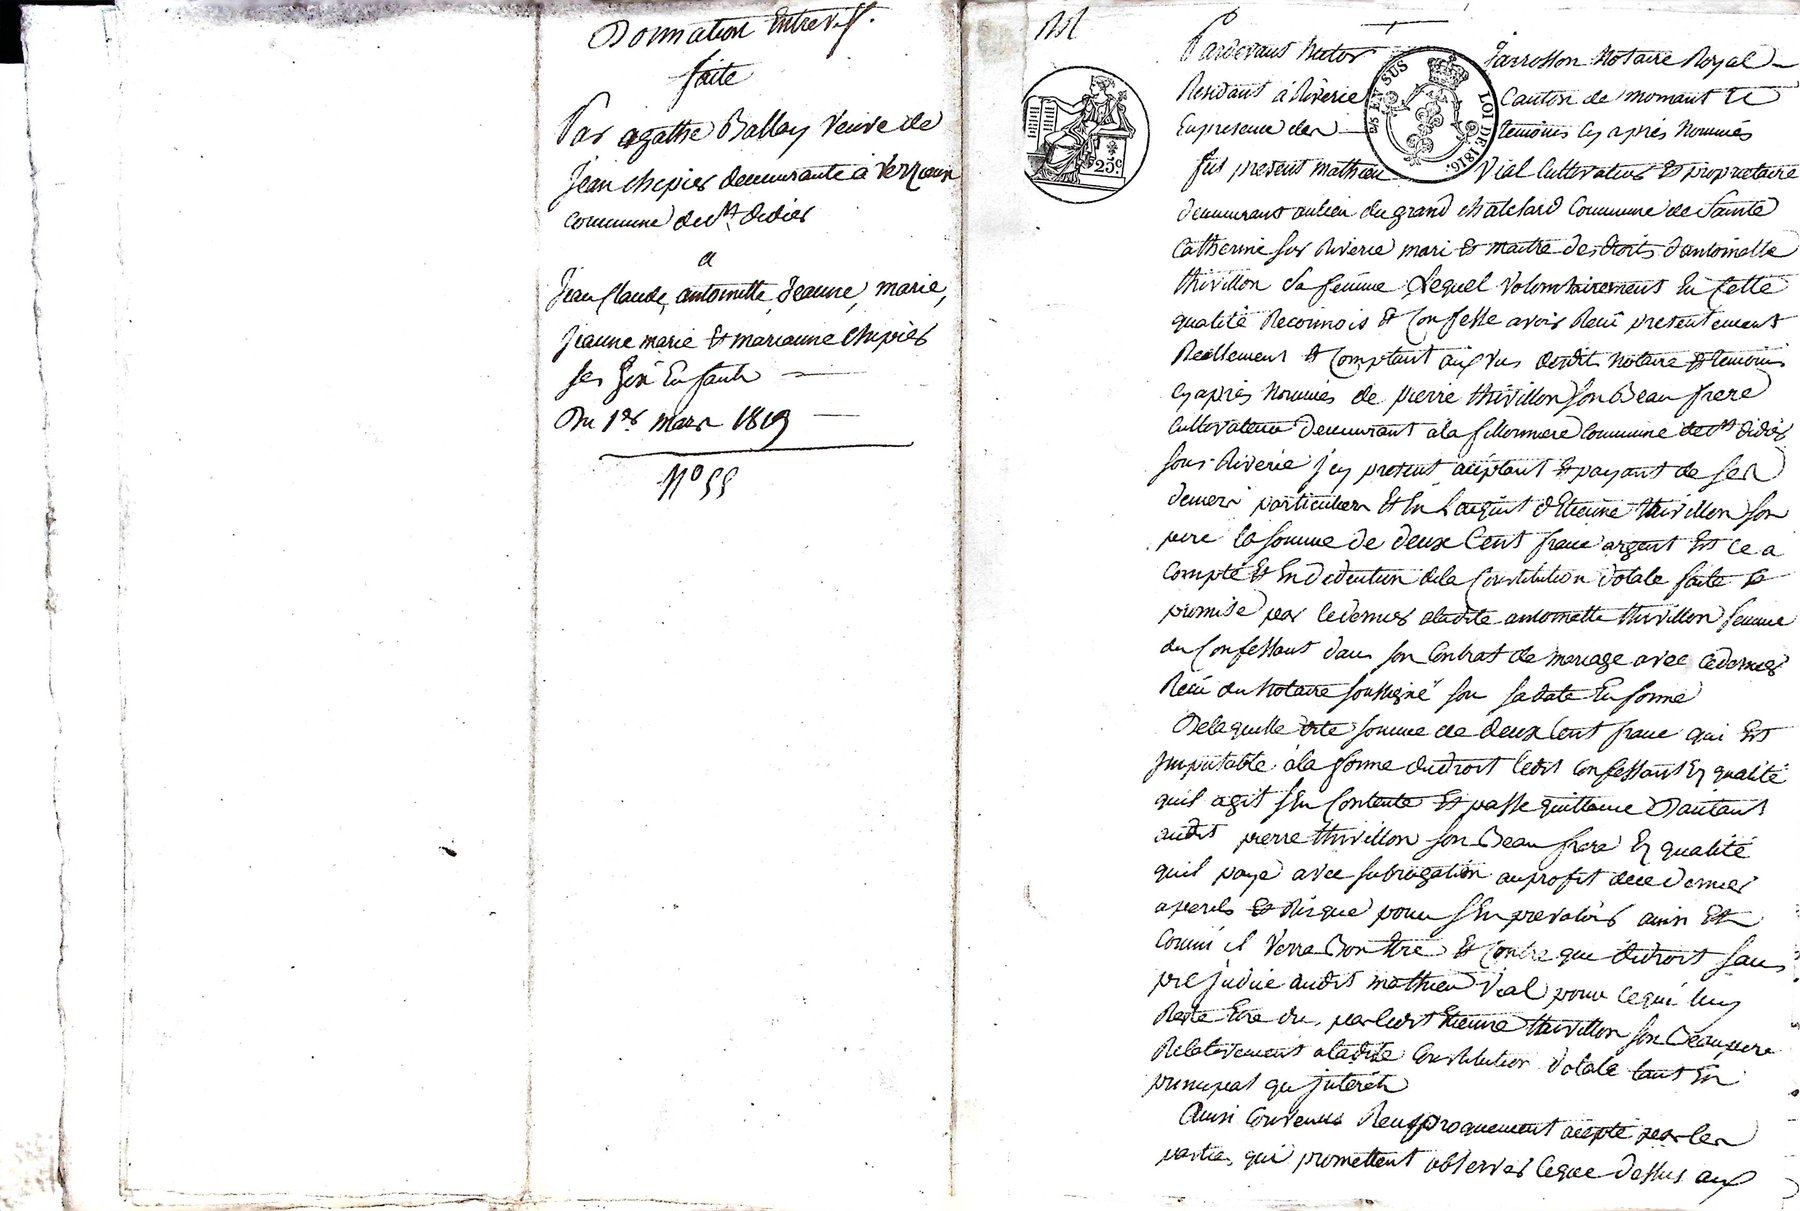 Donnation Entrevifs.
faite
Par agathe Ballay Veuve de
Jean chipier demeurante à
commune de St. didier
a
Jean Claude, antoinette, Jeanne, marie,
Jeanne marie Et marianne chipier
ses Six Enfants
Du 1er mars 1819
N° 55
Pardevant Jarrosson Notaire Royal
Residant à Riverie Canton de mornant Et
En presence des temoins cy après Nommés
fut present mathieu Vial Cultivateur Et proprietaire
demeurant au lieu du grand chatelard Commune de Sainte
Catherine sur Riverie mari Et maitre des droits d'antoinette
thivillon Sa femme Lequel Volontairement En Cette
qualité Reconnois Et Confesse avoir Recu presentement
Reellement Et Comptant aux vus dudit Notaire Et temoins
cy après Nommés de pierre thivillon Son Beau frere
Cultivateur demeurant a la Commune de St didier
sous Riverie icy present acceptant Et payant de ses
deniers particuliers Et En L'acquit d'Etienne thivillon son
pere la somme de deux Cent francs argent Et ce a
compte Et En deduction de la Constitution dotale faite Et
promise par ce dernier a ladite antoinette thivillon femme
du Confessant dans son Contrat de mariage avec ce dernier
Recu du Notaire soussigné sou sa date En forme
De laquelle dite somme de deux Cent francs qui Est
Imputable à la forme du droit ledit Confessant En qualité
quil agit s'En Contente Et passe quittance D'autant
audit pierre thivillon son Beau frere En qualité
quil paye avec subrogation au profit de ce dernier
a perils Et Risque pour s'En prevaloir ainsi Et
Comme il Verra Bon Etre Et Contre que de droit sans
prejudice audit mathieu Vial pour ce qui luy
Reste Etre du par ledit Etienne thivillon son Beau pere
Relativement a ladite Constitution dotale tant En
principal qu'interêts
Ainsi Convenu Reciproquement accepté par les
parties qui promettent observer ce que dessus aux
25c.
EN SUS
LOI DE 1816.